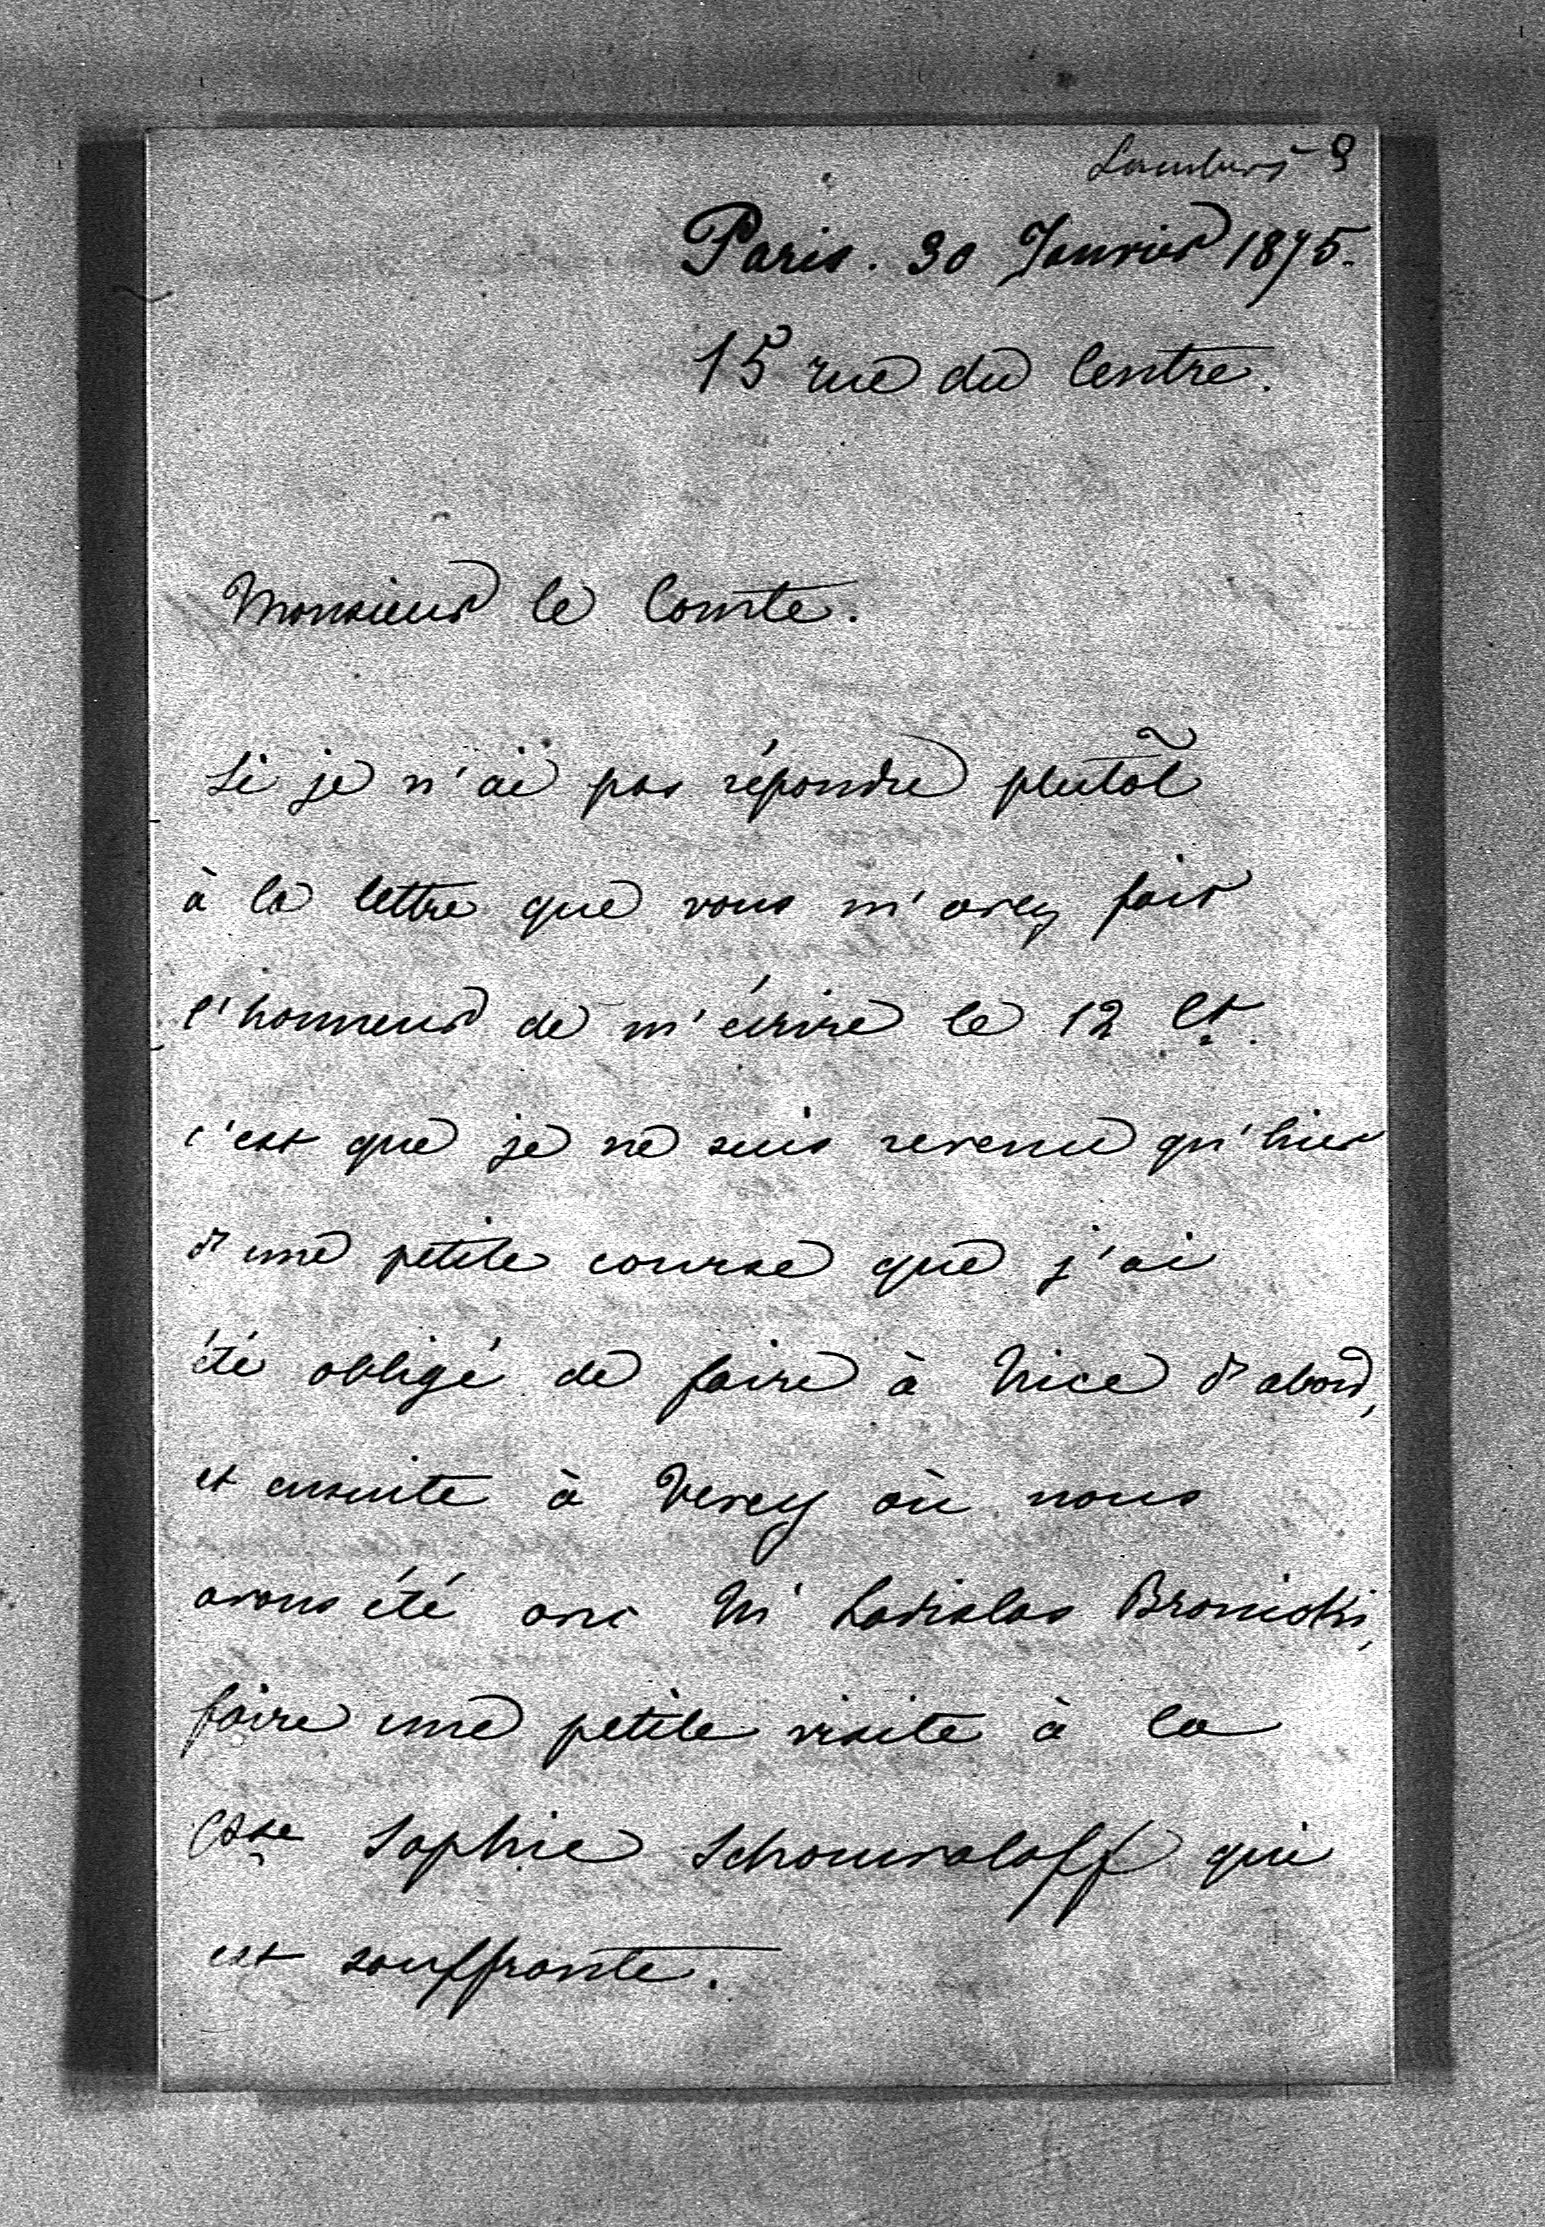 Paris. 30 Janvier 1875.
15 rue du Centre.
Monsieur le Comte.
Si je n'ai pas répondu plutôt
à la lettre que vous m'avez fait
l'honneur de m'écrire le 12 Ct.
c'est que je ne suis revenu qu'hier
d'une petite course que j'ai
été obligé de faire à Nice d'abord,
et ensuite à Vevey où nous
avons été avec Mr Ladislas Branicki,
faire une petite visite à la
Csse Sophie Schouvaloff qui
est souffrante.